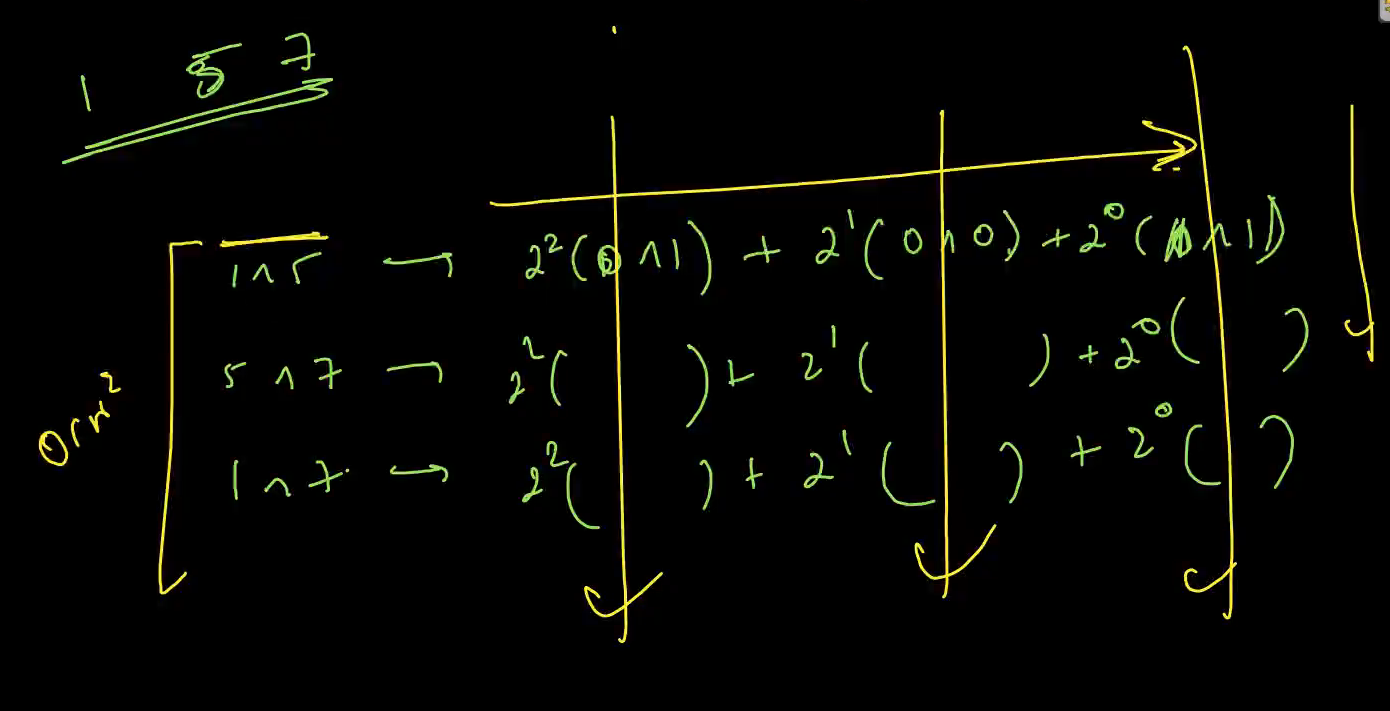 1 5 7
1 ^ 5 → 2²(0 ^ 1) + 2¹(0 ^ 0) + 2⁰(1 ^ 1)
5 ^ 7 → 2²( ) + 2¹( ) + 2⁰( )
O(n²
1 ^ 7 → 2²( ) + 2¹( ) + 2⁰( )